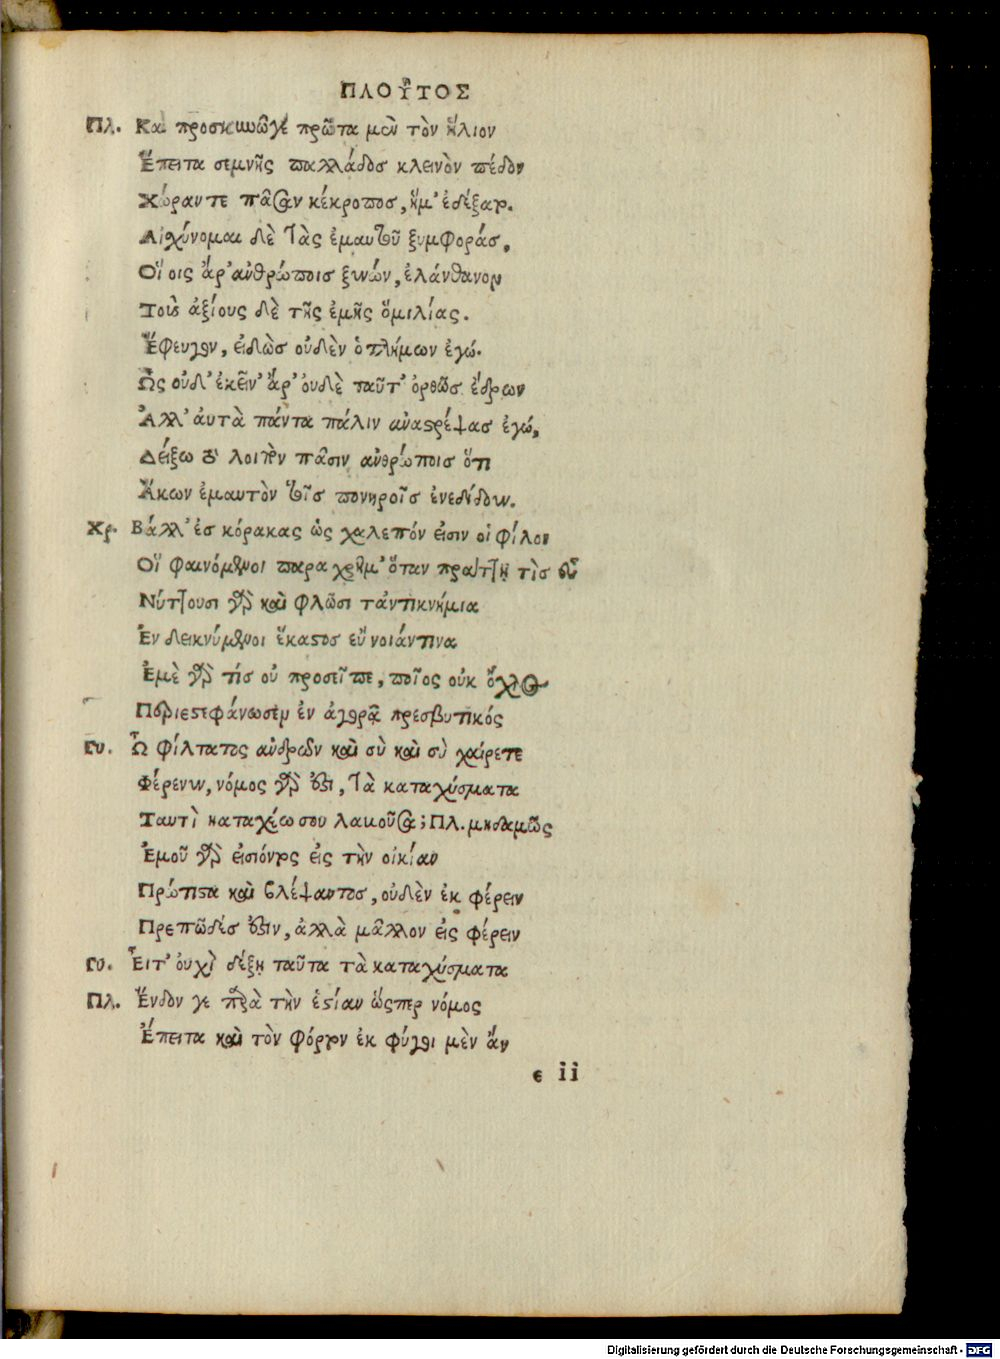 ΠΛΟΥ͂ΤΟΣ
Πλ. Και προσκυνῶγέ πρῶτα μεν τὸν ἥλιον
Ἔπειτα σεμνῆς παλλάδος κλεινὸν πέδον
Χώραντε πᾶσαν κέκροπος, ἥμ' ἐδέξατ.
Αἰσχύνομαι δὲ τὰς ἐμαυτοῦ ξυμφοράς,
Οἵ οις ἄρ' ἀνθρώποις ξυνών, ἐλάνθανον
Τοὺς ἀξίους δὲ τῆς ἐμῆς ὁμιλίας.
Ἔφευγον, εἰδὼς οὐδὲν ὁ τλήμων ἐγώ.
Ὡς οὐδ' ἐκεῖν' ἄρ' ὀυδὲ ταῦτ' ὀρθῶς ἔδρων
Ἀλλ' ἀυτὰ πάντα πάλιν ἀναστρέψας ἐγώ,
Δείξω τὸ λοιπὸν πᾶσιν ἀνθρώποις ὅτι
Ἄκων ἐμαυτὸν τοῖς πονηροῖς ἐνεδίδουν.
Χρ. Βάλλ' ἐς κόρακας ὡς χαλεπόν εἰσιν οἱ φίλοι
Οἵ φαινόμενοι παρα χρῆμ' ὅταν πράττῃ τὶς εὖ
Νύττουσι γὰρ καὶ φλῶσι τἀντικνήμια
Ἐν δεικνύμενοι ἕκαστος εὔνοιάντινα
Ἐμὲ γὰρ τίς οὐ προσεῖπε, ποῖος οὐκ ὄχλος
Περιεστεφάνωσεμ ἐν ἀγορᾷ πρεσβυτικός
Γυ. Ὦ φίλτατος ἀνδρῶν καὶ σὺ καὶ σὺ χαίρετε
Φέρενυν, νόμος γὰρ ἐστι, τὰ καταχύσματα
Ταυτὶ καταχέω σου λαβοῦσα; Πλ. μηδαμῶς
Ἐμοῦ γὰρ εἰσιόντος εἰς τὴν οἰκίαν
Πρώτιστα καὶ βλέψαντος, οὐδὲν ἐκ φέρειν
Πρεπῶδές ἐστιν, ἀλλὰ μᾶλλον εἰς φέρειν
Γυ. Εἶτ' ὀυχὶ δέξῃ ταῦτα τὰ καταχύσματα
Πλ. Ἔνδον γε παρὰ τὴν ἑστίαν ὥσπερ νόμος
Ἔπειτα καὶ τὸν φόρτον ἐκ φύγοι μὲν ἄν
ε ii
Digitalisierung gefördert durch die Deutsche Forschungsgemeinschaft - DFG